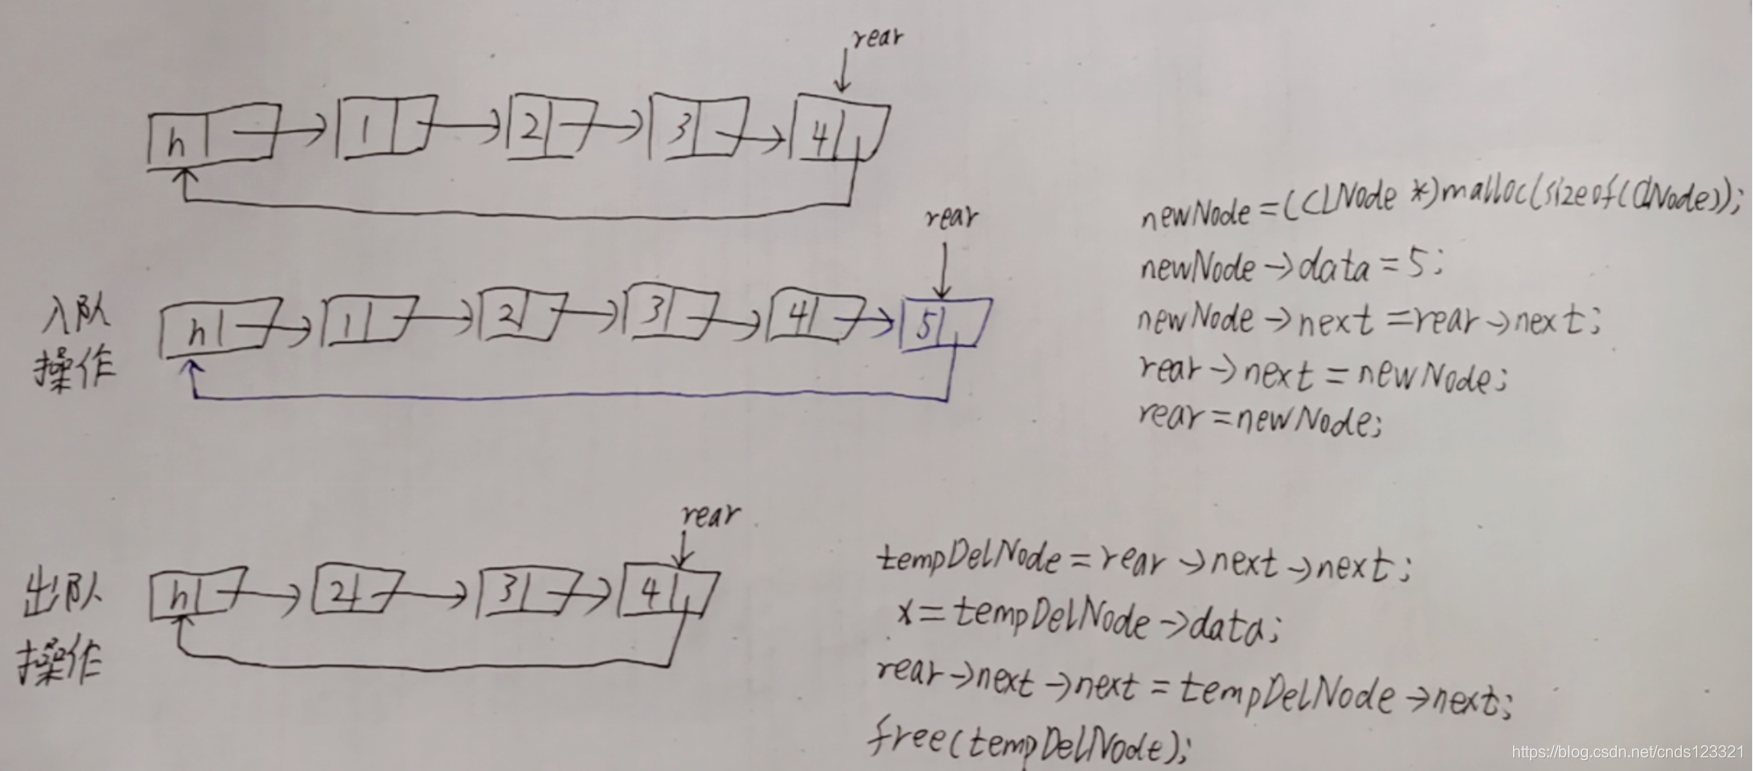 rear
h 1 2 3 4
rear
入队
操作
h 1 2 3 4 5
newNode=(CLNode *)malloc(sizeof(CLNode));
newNode->data=5;
newNode->next=rear->next;
rear->next=newNode;
rear=newNode;
rear
出队
操作
h 2 3 4
tempDelNode=rear->next->next;
x=tempDelNode->data;
rear->next->next=tempDelNode->next;
free(tempDelNode);
https://blog.csdn.net/cnds123321